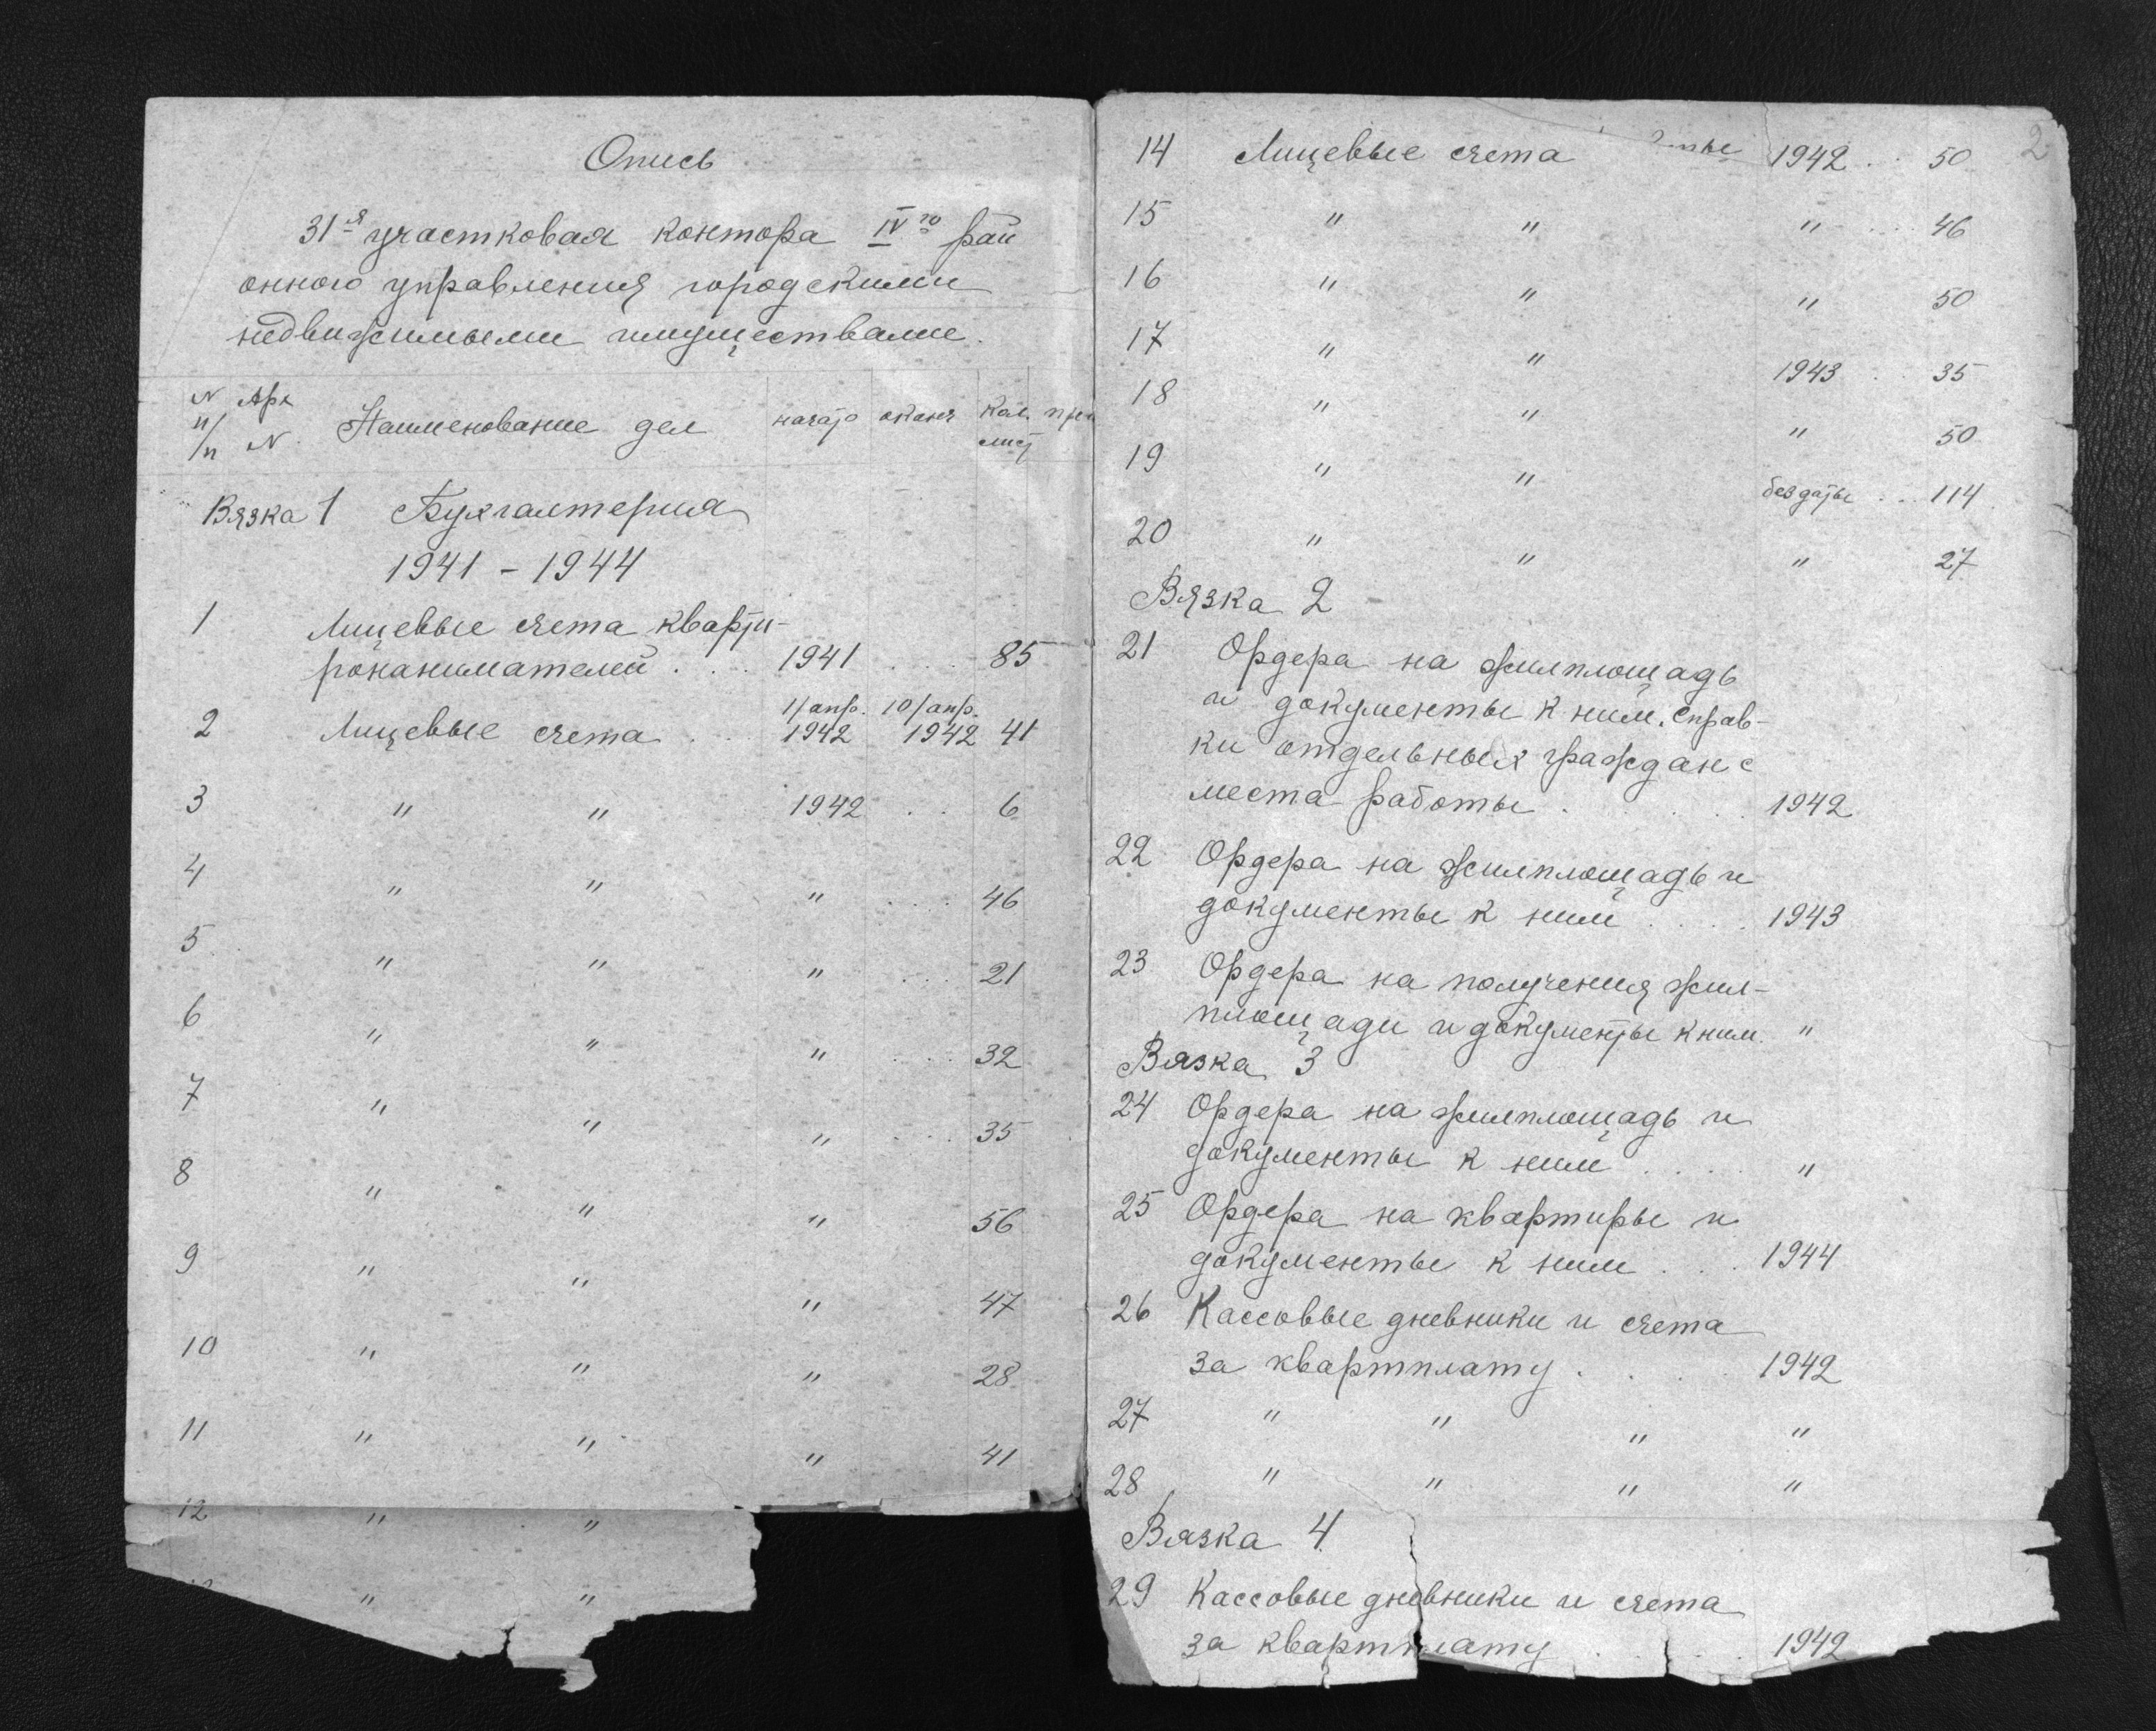 Опись
31-я участковая контора IV-го рай
онного управления городскими
недвижимыми имуществами.
N п/п Арх N. Наименование дел начато оконч Кол. лист при
Вязка 1 Бухгалтерия
1941 - 1944
1 Лицевые счета кварти-
ронанимателей . . . 1941 . . . 85
2 Лицевые счета . . . 1/апр. 1942 10/апр. 1942 41
3 " " 1942 . . 6
4 " " " . . . . 46
5 " " " . . . 21
6 " " " . . . . 32
7 " " " . . . . 35
8 " " " 56
9 " " " 47
10 " " " 28
11 " " " 41
12 " "
" "
2
14 Лицевые счета 1942 . . 50
15 " " " . . . 46
16 " " " 50
17 " " 1943 . . 35
18 " " " 50
19 " " без даты . . . 114
20 " " " 27
Вязка 2
21 Ордера на жилплощадь
и документы к ним. Справ-
ки отдельных граждан с
места работы . . . . . 1942
22 Ордера на жилплощадь и
документы к ним . . . . 1943
23 Ордера на получения жил-
площади и документы к ним. "
Вязка 3
24 Ордера на жилплощадь и
документы к ним . . . . "
25 Ордера на квартиры и
документы к ним . . . 1944
26 Кассовые дневники и счета
за квартплату . . . . 1942
27 " " " "
28 " " " "
Вязка 4.
29 Кассовые дневники и счета
за квартплату . . . . . 1942